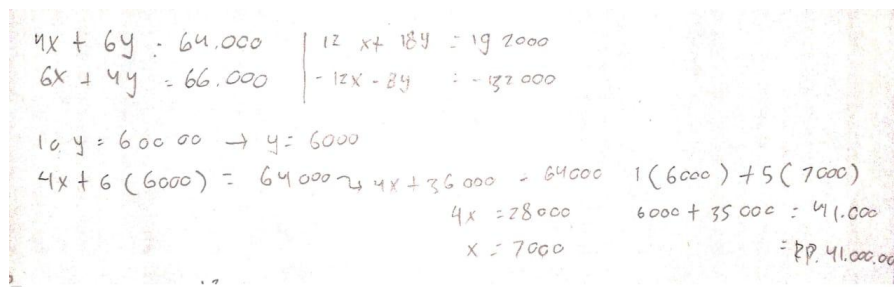 4x + 6y = 64.000 | 12 x + 18y = 192000
6x + 4y = 66.000 | - 12x - 8y = - 132 000
10 y = 600 00 → y = 6000
4x + 6 (6000) = 64 000 → 4x + 36 000 = 64000 1 (6000) + 5 (7000)
4x = 28000 6000 + 35 000 = 41.000
x = 7000 = RP. 41.000.00